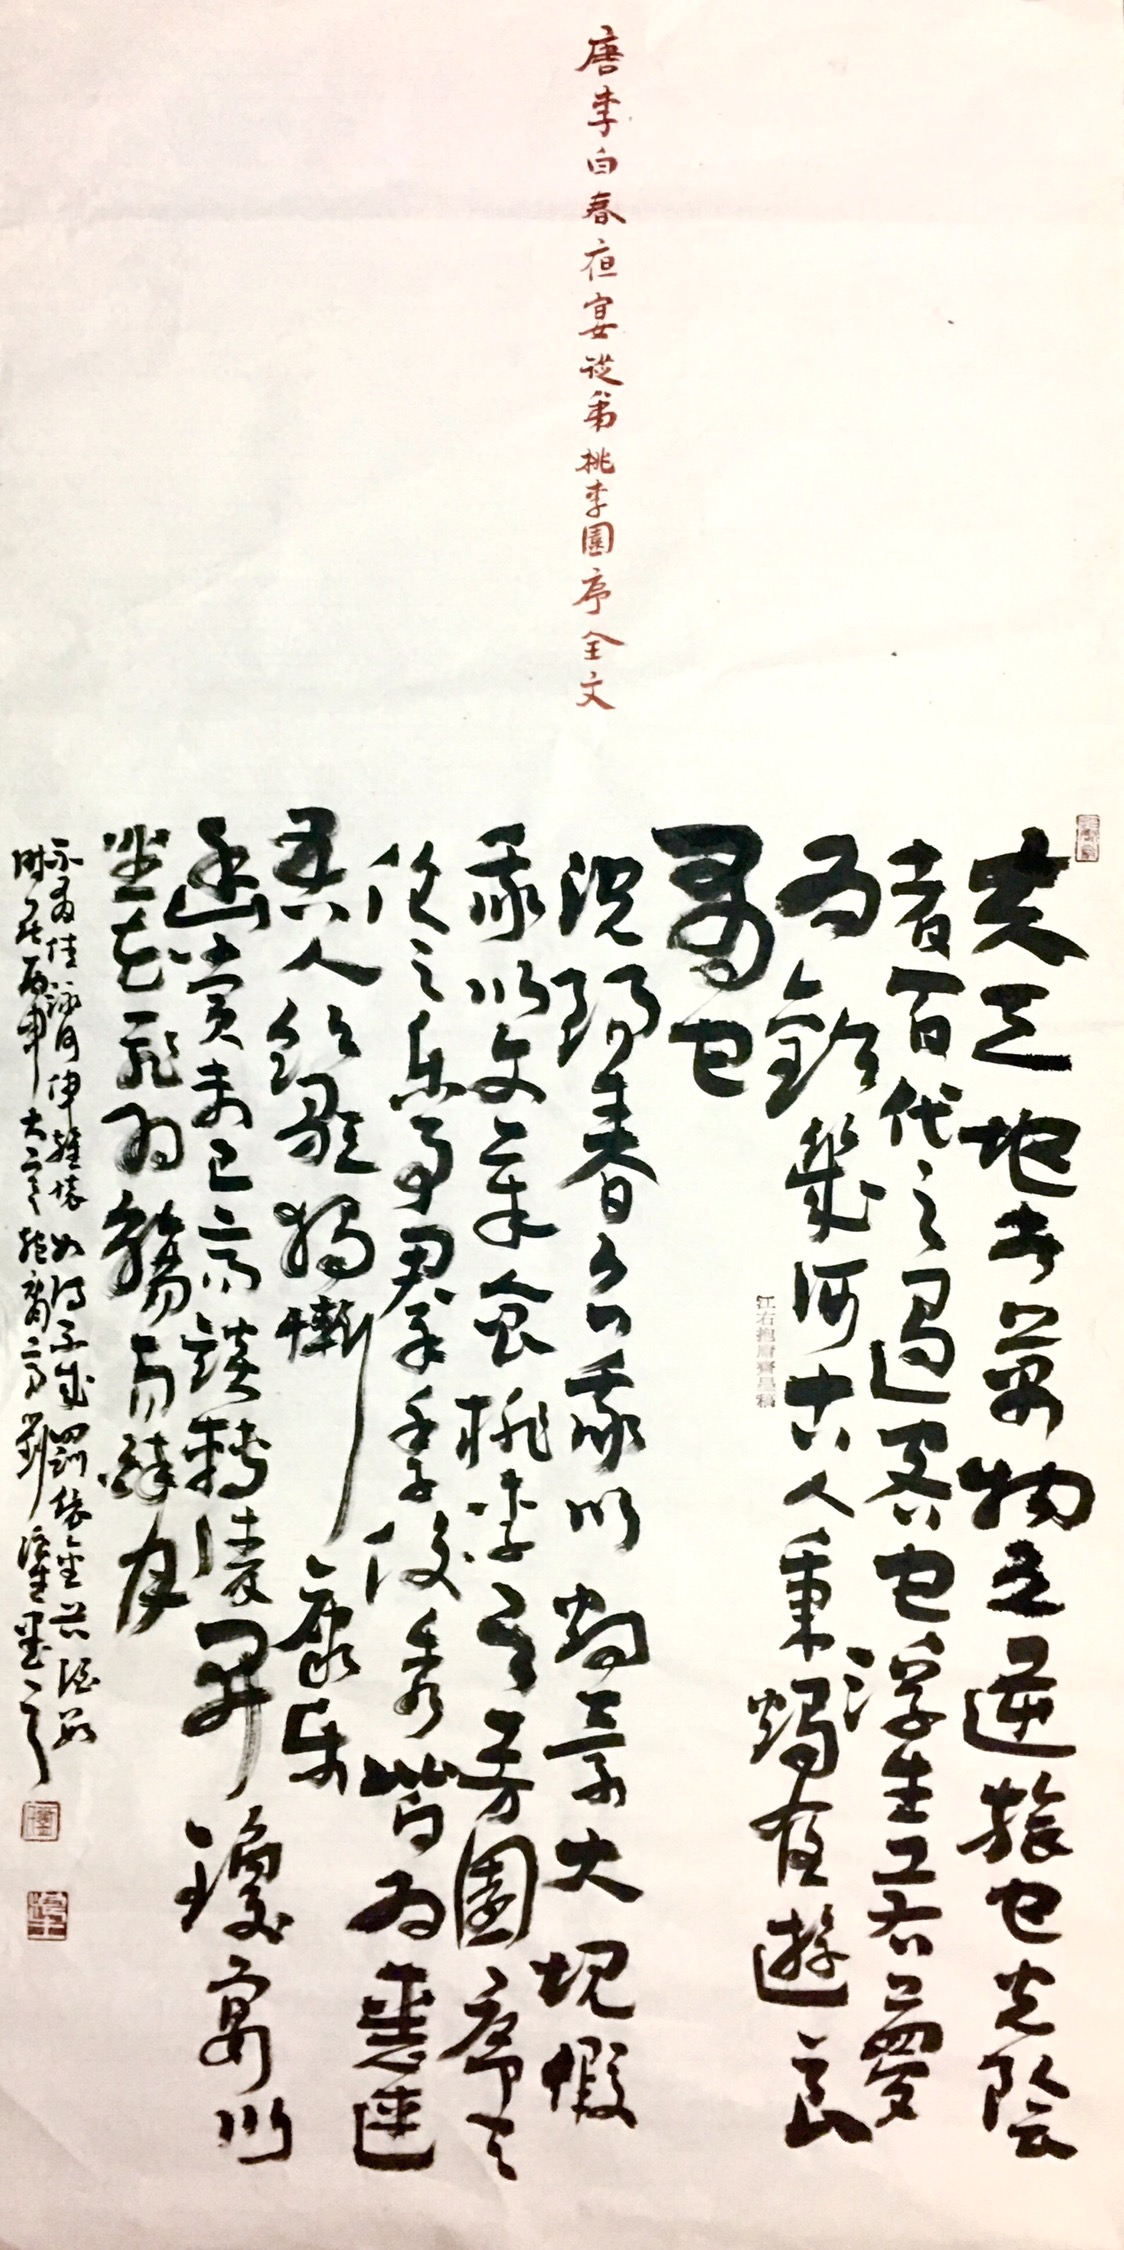 唐李白春夜宴從弟桃李園序全文
夫天地者萬物之逆旅也光陰
者百代之過客也浮生若夢
為歡幾何古人秉燭夜遊良
有以也
況陽春召我以煙景大塊假
我以文章會桃李之芳園序天
倫之樂事群季俊秀皆為惠連
吾人詠歌獨慚康樂
幽賞未已高談轉清開瓊筵以
坐花飛羽觴而醉月
不有佳詠何伸雅懷如詩不成罰依金谷酒數
時在丙申大
江右抱甕齋墨稿